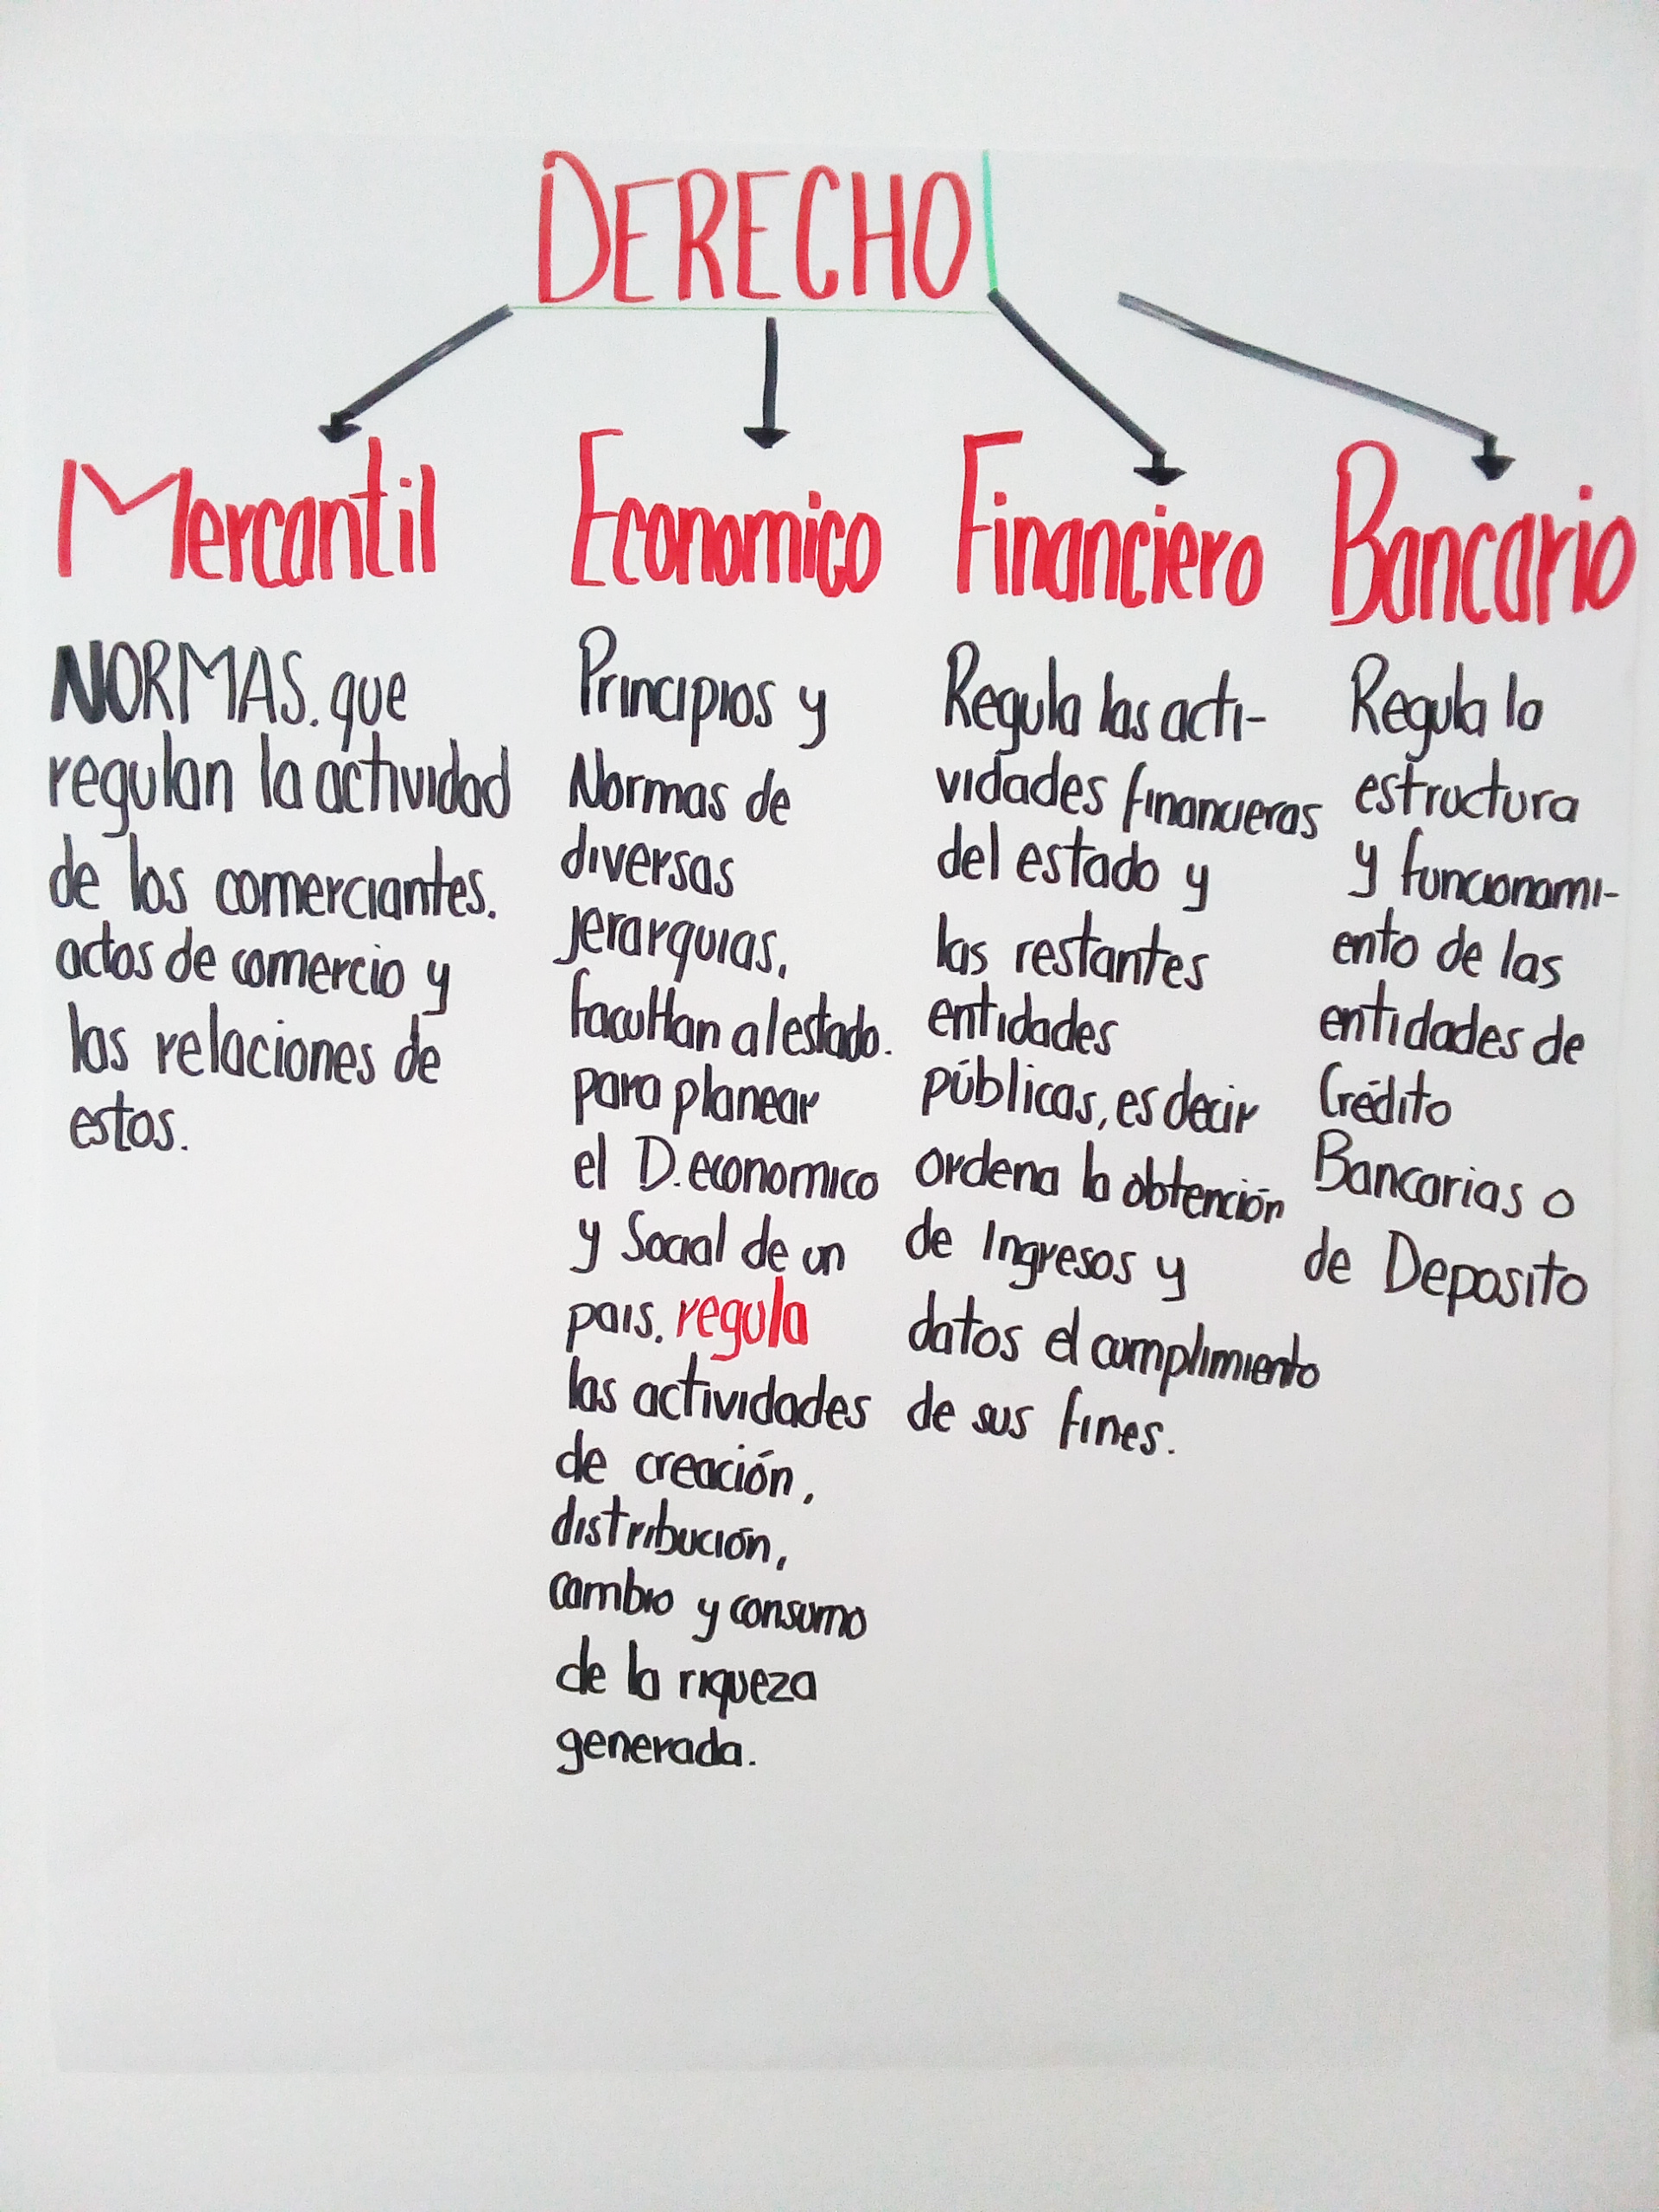 DERECHO
Mercantil
NORMAS. que
regulan la actividad
de los comerciantes.
actos de comercio y
las relaciones de
estos.
Economico
Principios y
Normas de
diversas
jerarquias,
facultan al estado.
para planear
el D. economico
y Social de un
pais. regula
las actividades
de creación,
distribución,
cambio y consumo
de la riqueza
generada.
Financiero
Regula las acti-
vidades financieras
del estado y
las restantes
entidades
públicas, es decir
ordena la obtención
de Ingresos y
datos el cumplimiento
de sus fines.
Bancario
Regula la
estructura
y funcionami-
ento de las
entidades de
Crédito
Bancarias o
de Deposito